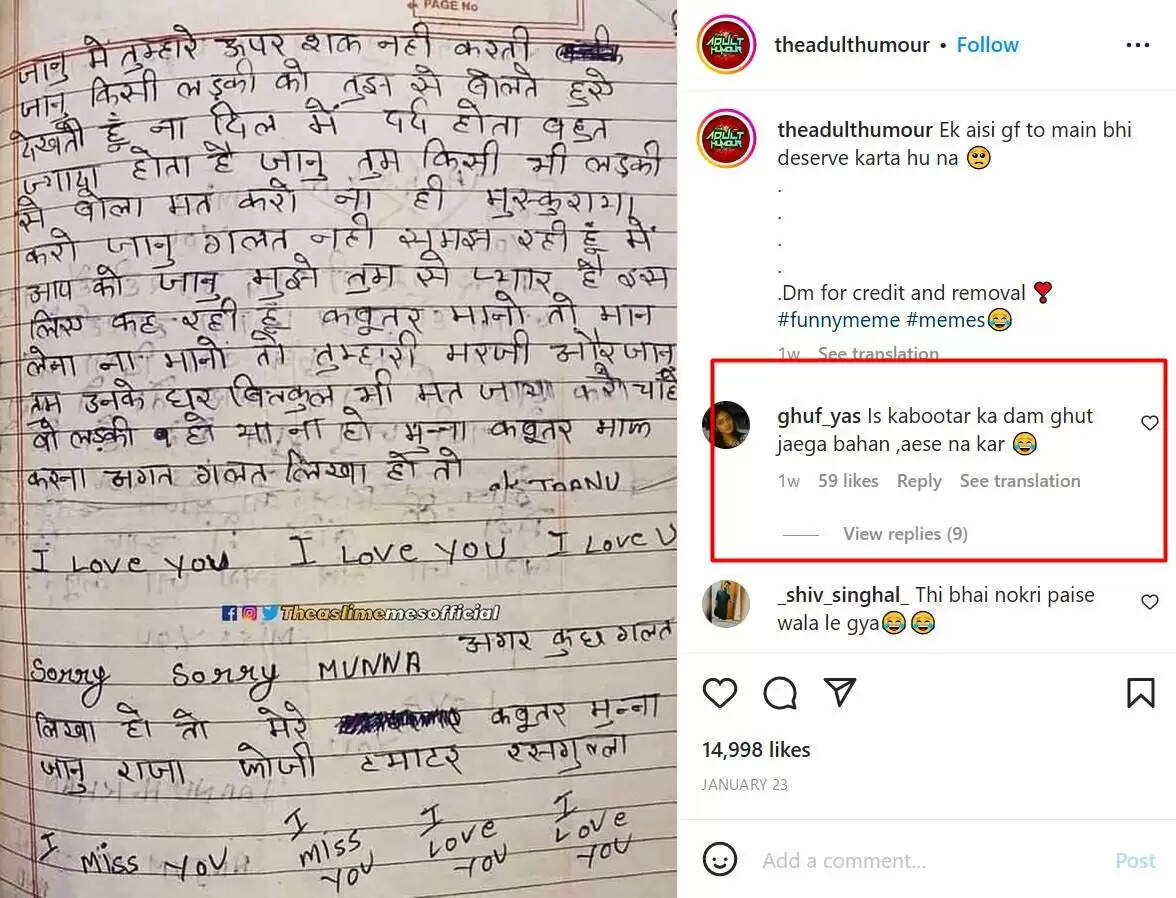 PAGE No
जानु मे तुम्हारे ऊपर शक नही करती
जानु किसी लड़की को तुझ से बोलते हुऐ
देखती हूँ ना दिल में दर्द होता बहुत
ज्यादा होता है जानु तुम किसी भी लड़की
से बोला मत करो ना ही मुस्कुराया
करो जानु गलत नही समझ रही हूँ में
आप को जानु मुझे तुम से प्यार है इस
लिए कह रही हूँ कबूतर मानो तो मान
लेना ना मानो तो तुम्हारी मरजी और जानु
तुम उनके घर बिलकुल भी मत जाया करो चाहे
वो लड़की हो या ना हो मुन्ना कबूतर माफ
करना अगत गलत लिखा हो तो
I LOVE YOU I LOVE YOU I LOVE U
Theaslimemesofficial
Sorry Sorry MUNNA अगर कुछ गलत
लिखा हो तो मेरे कबूतर मुन्ना
जानु राजा फोजी टमाटर रसगुल्ला
I MISS YOU I MISS YOU I LOVE YOU I LOVE YOU
ADULT HUMOUR
theadulthumour • Follow
ADULT HUMOUR
theadulthumour Ek aisi gf to main bhi
deserve karta hu na 🥺
.
.
.
.
.Dm for credit and removal ❣️
#funnymeme #memes😂
1w See translation
ghuf_yas Is kabootar ka dam ghut
jaega bahan ,aese na kar 😂
1w 59 likes Reply See translation
View replies (9)
_shiv_singhal_ Thi bhai nokri paise
wala le gya😂😂
14,998 likes
JANUARY 23
Add a comment...
Post